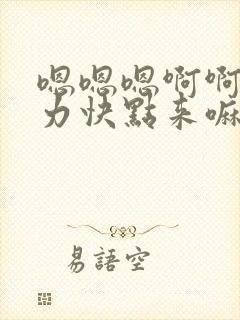 嗯嗯嗯啊啊
力快點来嘛
易語空